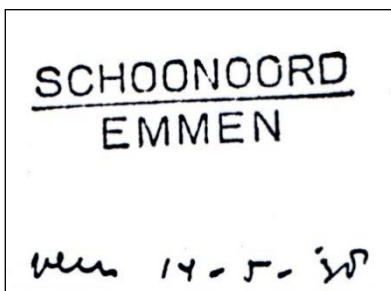 SCHOONOORD
EMMEN
14-5-'38